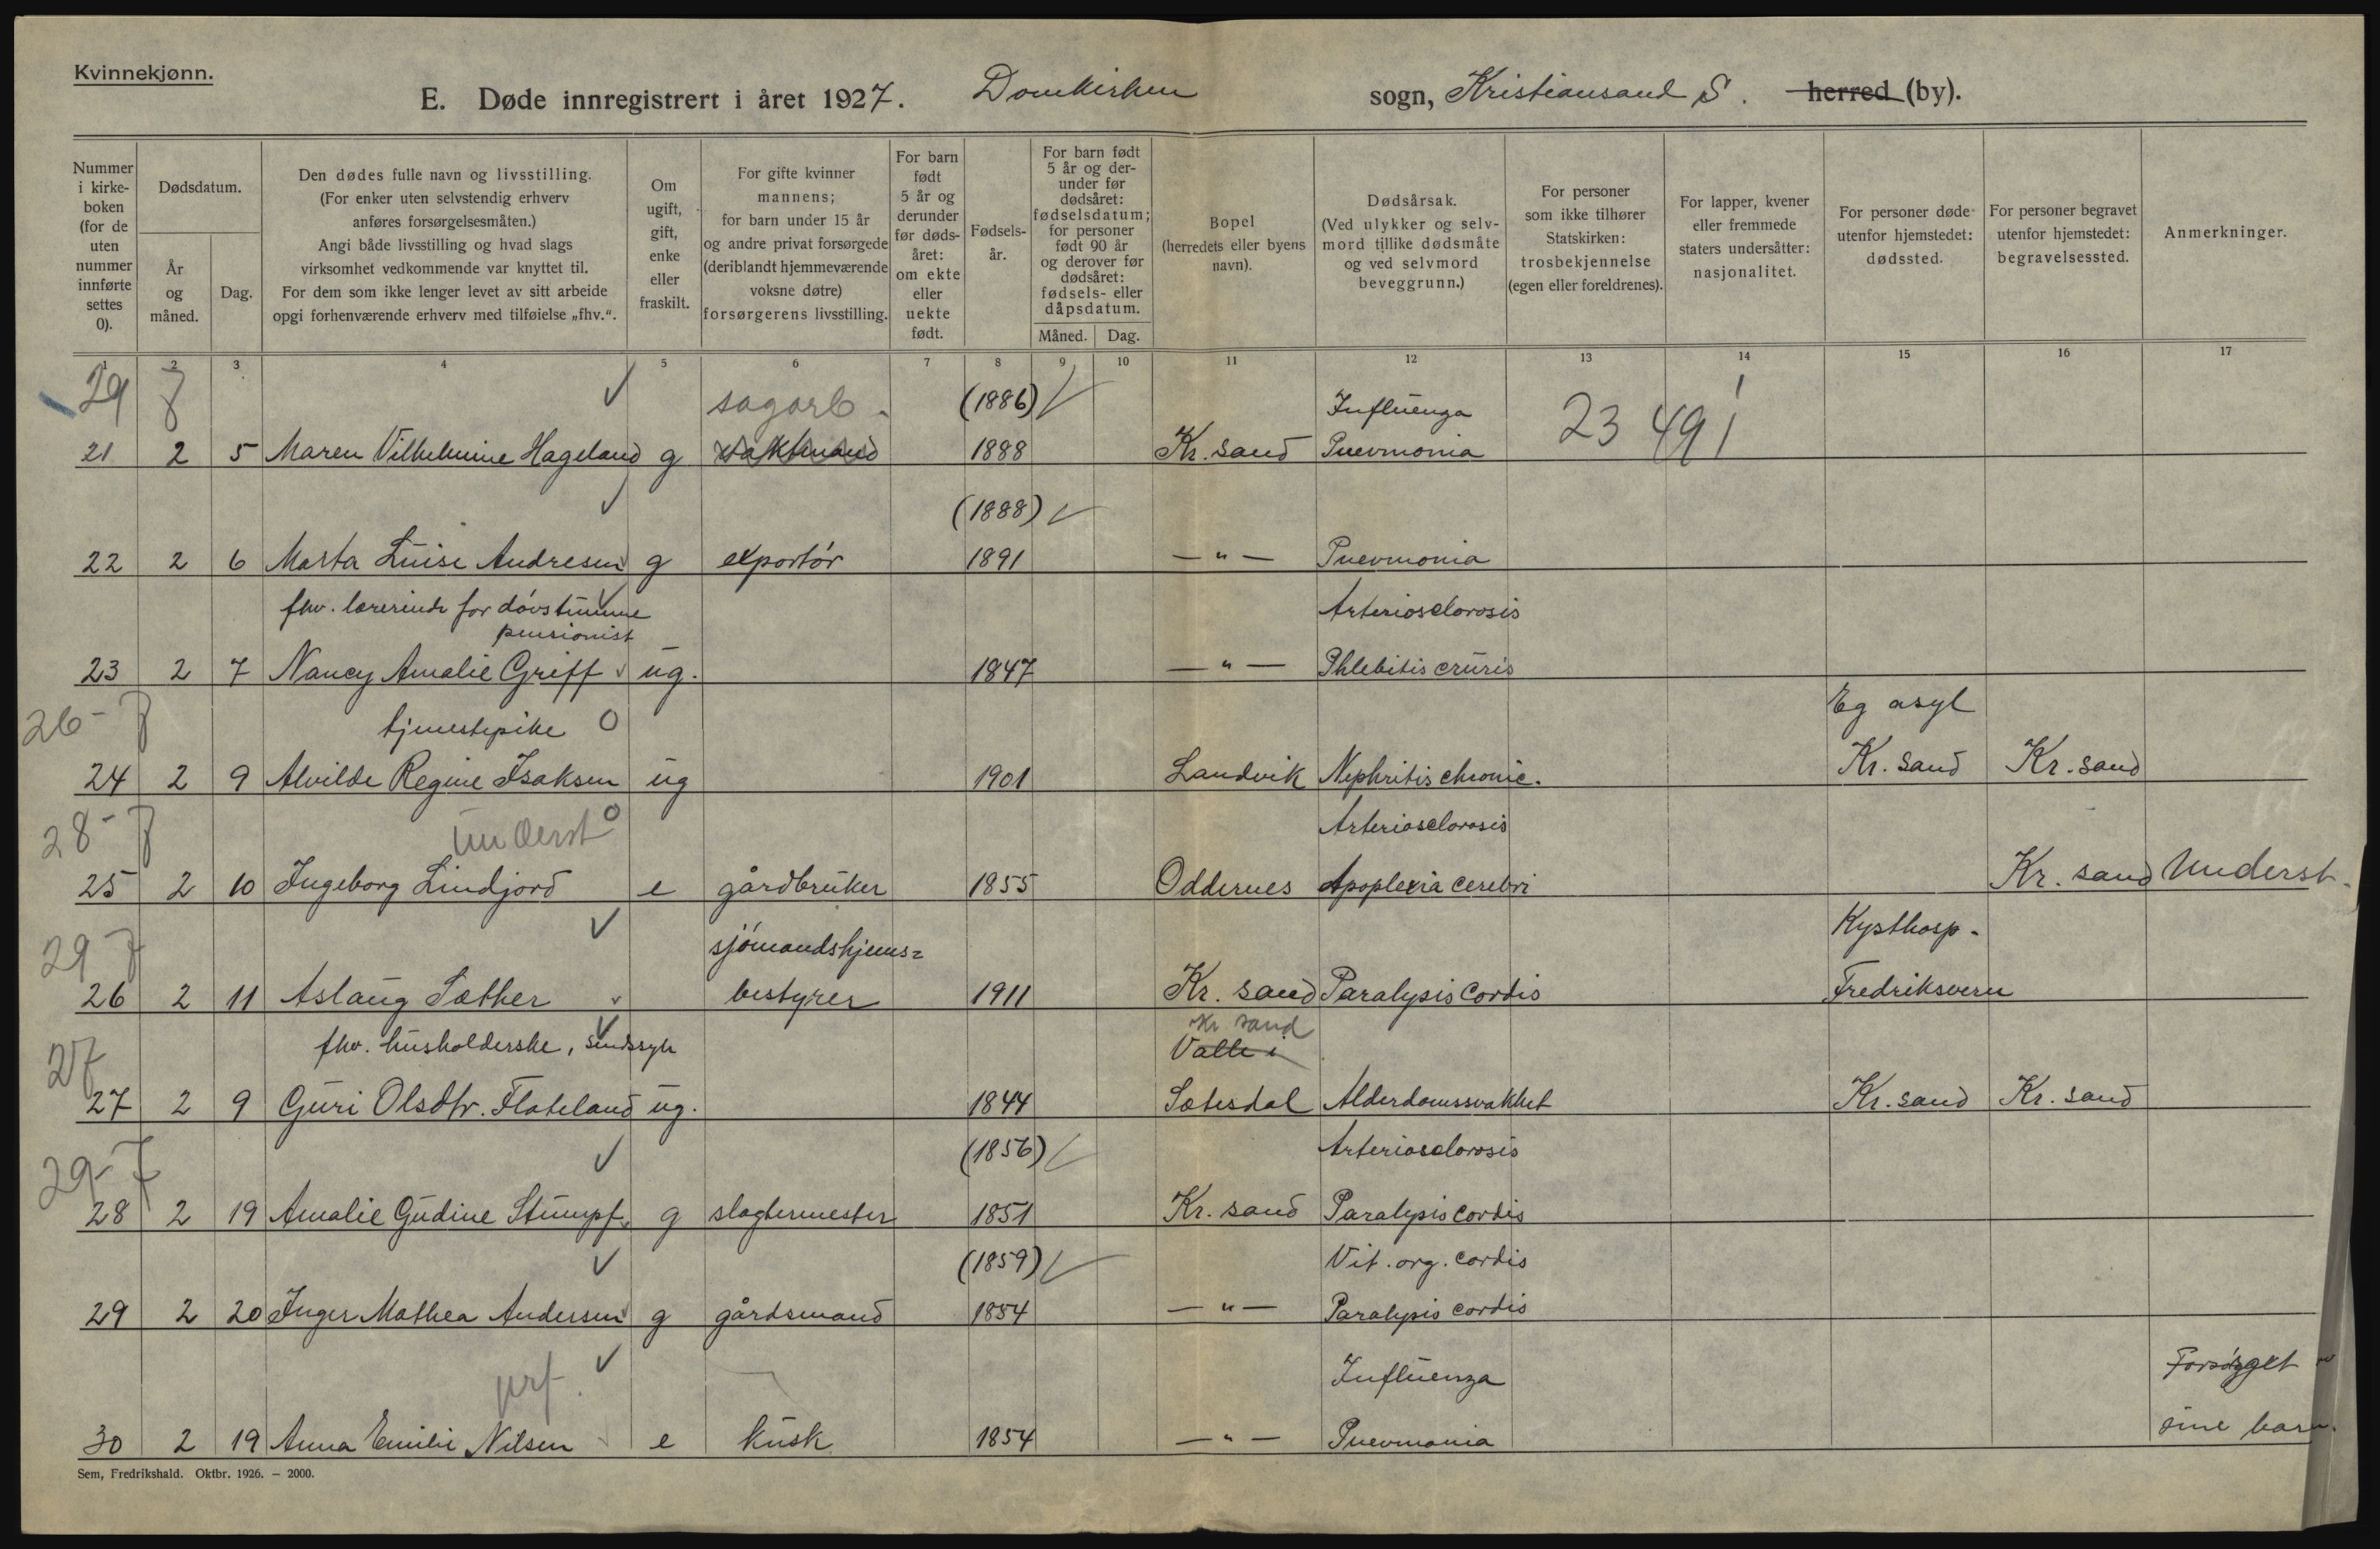 Kvinnekjønn.
E. Døde innregistrert i året 1927. Domkirken sogn, Kristiansand S. herred (by).
Nummer i kirke-boken (for de uten nummer innførte settes 0).
Dødsdatum.
År og måned.
Dag.
Den dødes fulle navn og livsstilling.
(For enker uten selvstendig erhverv
anføres forsørgelsesmåten.)
Angi både livsstilling og hvad slags
virksomhet vedkommende var knyttet til.
For dem som ikke lenger levet av sitt arbeide
opgi forhenværende erhverv med tilføielse „fhv.“.
Om ugift, gift, enke eller fraskilt.
For gifte kvinner
mannens;
for barn under 15 år
og andre privat forsørgede
(deriblandt hjemmeværende
voksne døtre)
forsørgerens livsstilling.
For barn født 5 år og derunder før døds-året: om ekte eller uekte født.
Fødsels-år.
For barn født 5 år og der-under før dødsåret: fødselsdatum; for personer født 90 år og derover før dødsåret: fødsels- eller dåpsdatum.
Måned. Dag.
Bopel
(herredets eller byens
navn).
Dødsårsak.
(Ved ulykker og selv-
mord tillike dødsmåte
og ved selvmord
beveggrunn.)
For personer
som ikke tilhører
Statskirken:
trosbekjennelse
(egen eller foreldrenes).
For lapper, kvener
eller fremmede
staters undersåtter:
nasjonalitet.
For personer døde
utenfor hjemstedet:
dødssted.
For personer begravet
utenfor hjemstedet:
begravelsessted.
Anmerkninger.
1 2 3 4 5 6 7 8 9 10 11 12 13 14 15 16 17
29 7 sagarb. (1886) Influenza 23 491
21 2 5 Maren Vilhelmine Hageland g vaktmand 1888 Kr. sand Pnevmonia
(1888)
22 2 6 Marta Luise Andresen g exportør 1891 — " — Pnevmonia
fhv. lærerinde for døvstumme Arteriosclorosis
pensionist
23 2 7 Nancy Amalie Greff ug. 1847 — " — Phlebitis cruris
26 - 7 tjenestepike O Eg asyl
24 2 9 Alvilde Regine Isaksen ug 1901 Landvik Nephritis chronic. Kr. sand Kr. sand
28 - 7 underst O Arteriosclorosis
25 2 10 Ingeborg Lindjord e gårdbruker 1855 Oddernes Apoplexia cerebri Kr. sand Underst.
29 7 sjømandshjems= Kysthosp.
26 2 11 Aslaug Sæther bestyrer 1911 Kr. sand Paralysis Cordis Fredriksvern
Kr sand
27 fhv. husholderske, sindssyk Valle i
27 2 9 Guri Olsdtr. Flateland ug. 1844 Sætesdal Alderdomssvakhet Kr. sand Kr. sand
29 - 7 (1856) Arteriosclorosis
28 2 19 Amalie Gudine Stumpf g slagtermester 1851 Kr. sand Paralysis cordis
(1859) Vit. org. cordis
29 2 20 Inger Mathea Andersen g gårdsmand 1854 — " — Paralysis cordis
prf. Influenza Forsørget
30 2 19 Anna Emilie Nilsen e kusk 1854 — " — Pnevmonia sine barn.
Sem, Fredrikshald. Oktbr. 1926. — 2000.